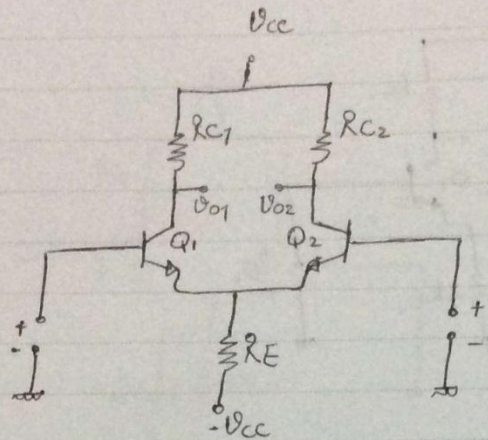 Vcc
RC1
RC2
Vo1
Vo2
Q1
Q2
+
-
+
-
RE
-Vcc